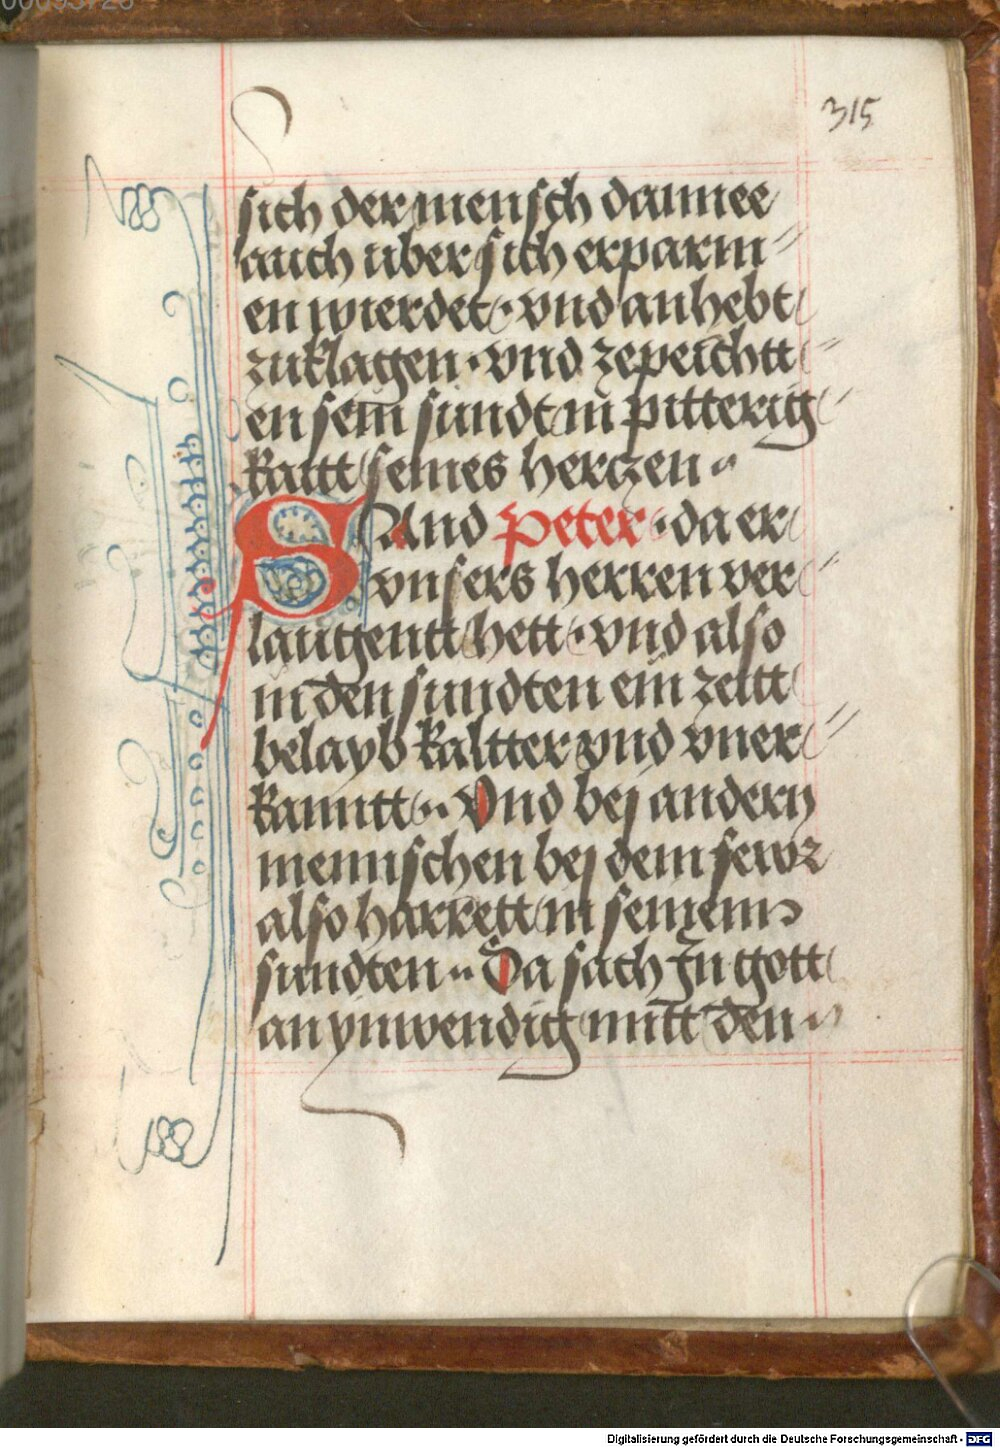 315
sich der mensch dannee
auch uber sich erparm〃
en wierdet · vnd anhebt
zuklagen · vnd zepeichtt〃
en sein sundt in pitterig〃
kaitt seines hertzen〃
SAnd Peter · da er
vnsers herren ver〃
laugentt hett · vnd also
in den sundten ein zeitt
belayb kaltter vnd vner〃
kanntt ·· Vnd bej andern
mennschen bej dem fewr
also harrett in seinenn
sundten ·· Da sach In gott
an ynwendig mitt den
Digitalisierung gefördert durch die Deutsche Forschungsgemeinschaft - DFG